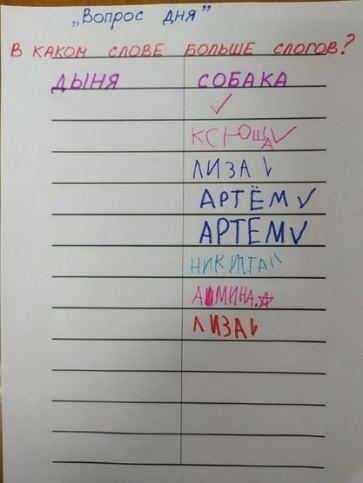 „Вопрос дня”
В КАКОМ СЛОВЕ БОЛЬШЕ СЛОГОВ?
ДЫНЯ СОБАКА
✓
КСЮША✓
ЛИЗА✓
АРТЁМ✓
АРТЕМ✓
НИКИТА
АМИНА
ЛИЗА✓